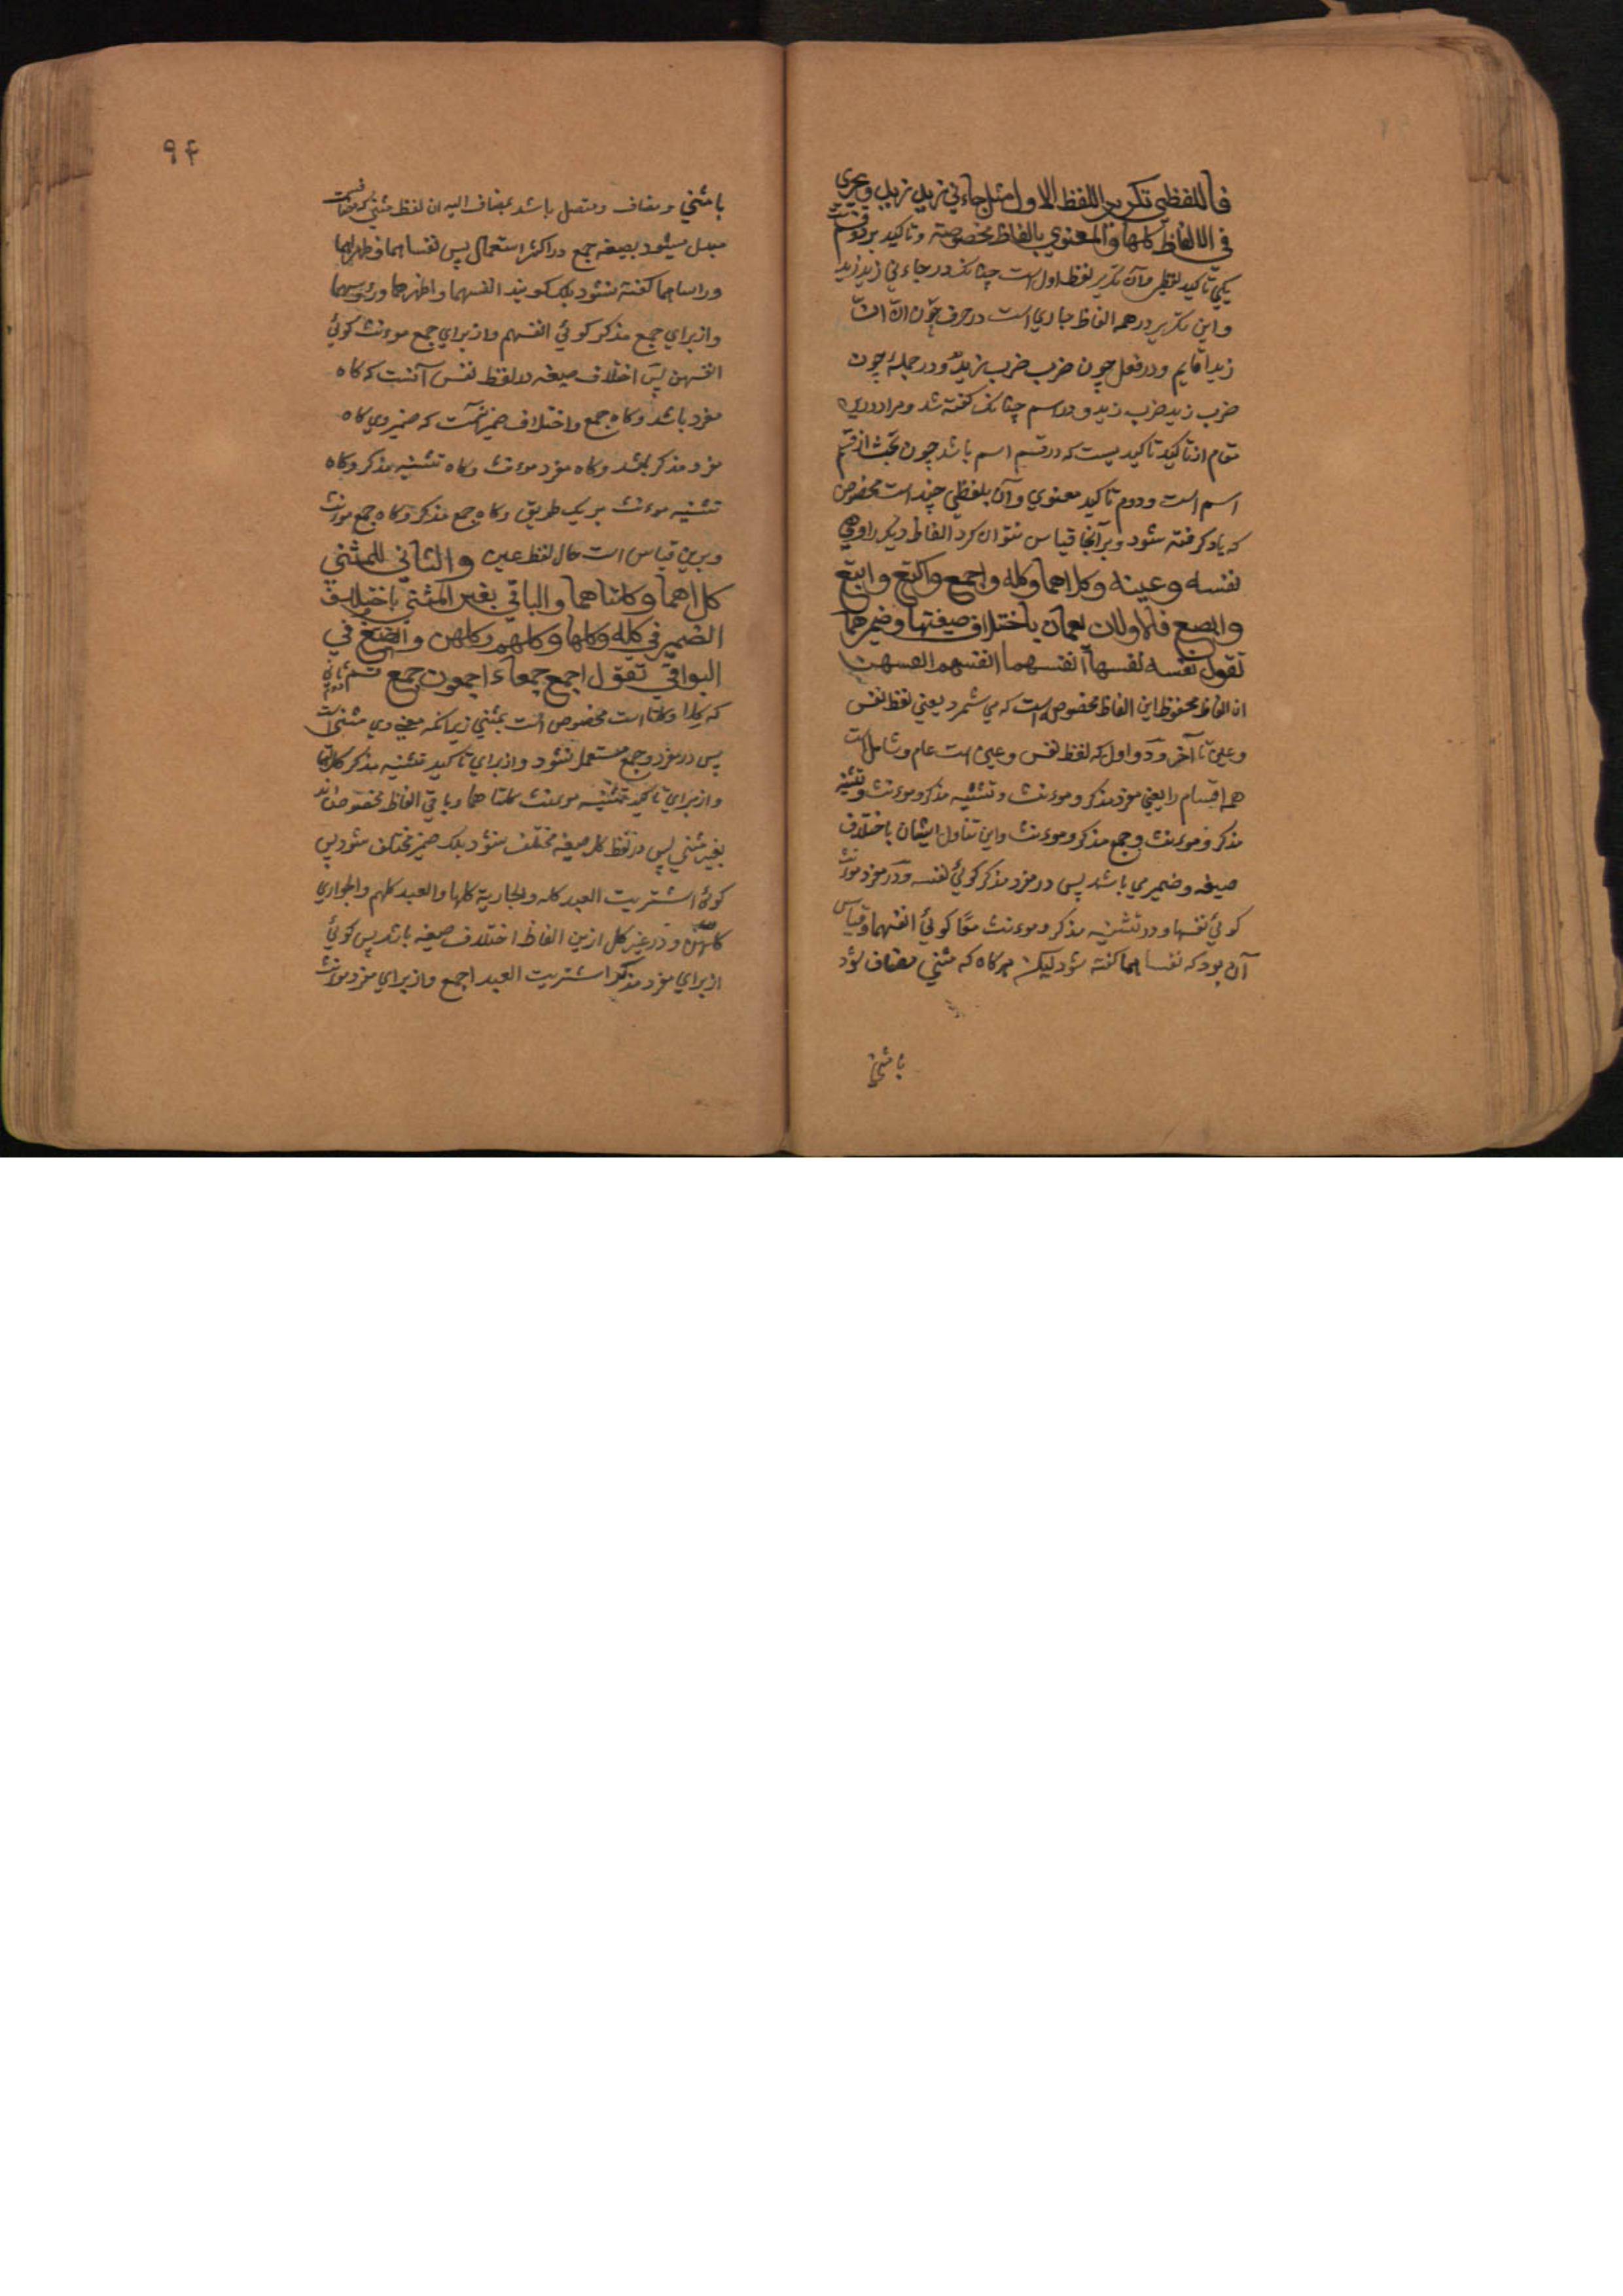 فاللفظي تكرير اللفظ الاول مثل جاءني زيد زيد ويجري
في الالفاظ كلها والمعنوي بالفاظ مخصوصة وتاكيد بر دو قسمست
يكي تاكيد لفظي وآن تكرير لفظ اول است چنانك در جاءني زيد زيد
واين تكرير در همه الفاظ جاري است در حرف چون ان ان
زيدا قايم ودر فعل چون ضرب ضرب زيد ودر جمله چون
ضرب زيد ضرب زيد ودر اسم چنانك كفته شد ومراد درين
مقام از تاكيد تاكيديست كه در قسم اسم باشد چون بحث از قسم
اسم است ودوم تاكيد معنوي وآن بلفظي چند است مخصوص
كه ياد كرفته شود وبر آنها قياس نتوان كرد الفاظ ديكر را وهي
نفسه وعينه وكلاهما وكله واجمع واكتع وابتع
وابصع فالاولان يعمان باختلاف صيغتها وضميرهما
تقول نفسه نفسها انفسهما انفسهم انفسهن
ان الفاظ محفوظ اين الفاظ مخصوصه است كه مي شمرد يعني لفظ نفس
وعين تا آخر ودو اول كه لفظ نفس وعين است عام وشامل است
همه اقسام را يعني مفرد مذكر وموءنث وتثنيه مذكر وموءنث وتثنيه
مذكر وموءنث وجمع مذكر وموءنث واين تناول ايشان باختلاف
صيغه وضمير مي باشد پس در مفرد مذكر كوئي نفسه ودر مفرد موءنث
كوئي نفسها ودر تثنيه مذكر وموءنث معا كوئي انفسهما وقياس
آن بود كه نفساهما كفته شود ليكن هركاه كه مثني مضاف شود
بامثني
٩۴
بامثني ومضاف ومتصل باشد بمضاف اليه ان لفظ مثني كه مضافست
مبدل ميشود بصيغه جمع در اكثر استعمال پس نفساهما وظهراهما
وراساهما كفته نشود بلك كويند انفسهما واظهرهما ورؤسهما
واز براي جمع مذكر كوئي انفسهم واز براي جمع موءنث كوئي
انفسهن پس اختلاف صيغه در لفظ نفس آنست كه كاه
مفرد باشد وكاه جمع واختلاف ضمير آنست كه ضمير وي كاه
مفرد مذكر باشد وكاه مفرد موءنث وكاه تثنيه مذكر وكاه
تثنيه موءنث بريك طريق وكاه جمع مذكر وكاه جمع موءنث
وبرين قياس است حال لفظ عين والثاني للمثني
كلاهما وكلتاهما والباقي بغير المثني باختلاف
الضمير في كله وكلها وكلهم وكلهن والصيغ في
البواقي تقول اجمع جمعاء اجمعون جمع قسم ثاني
كه كلا وكلتا است مخصوص است بمثني زيرانكه معني وي مثني است
پس در مفرد وجمع مستعمل نشود واز براي تاكيد تثنيه مذكر كلاهما
واز براي تاكيد تثنيه موءنث كلتاهما وباقي الفاظ مخصوص اند
بغير مثني پس در لفظ كل صيغه مختلف نشود بلك ضمير مختلف شود پس
كوئي اشتريت العبد كله والجارية كلها والعبيد كلهم والجواري
كلهن ودر غير كل ازين الفاظ اختلاف صيغه باشد پس كوئي
از براي مفرد مذكر اشتريت العبد اجمع واز براي مفرد موءنث